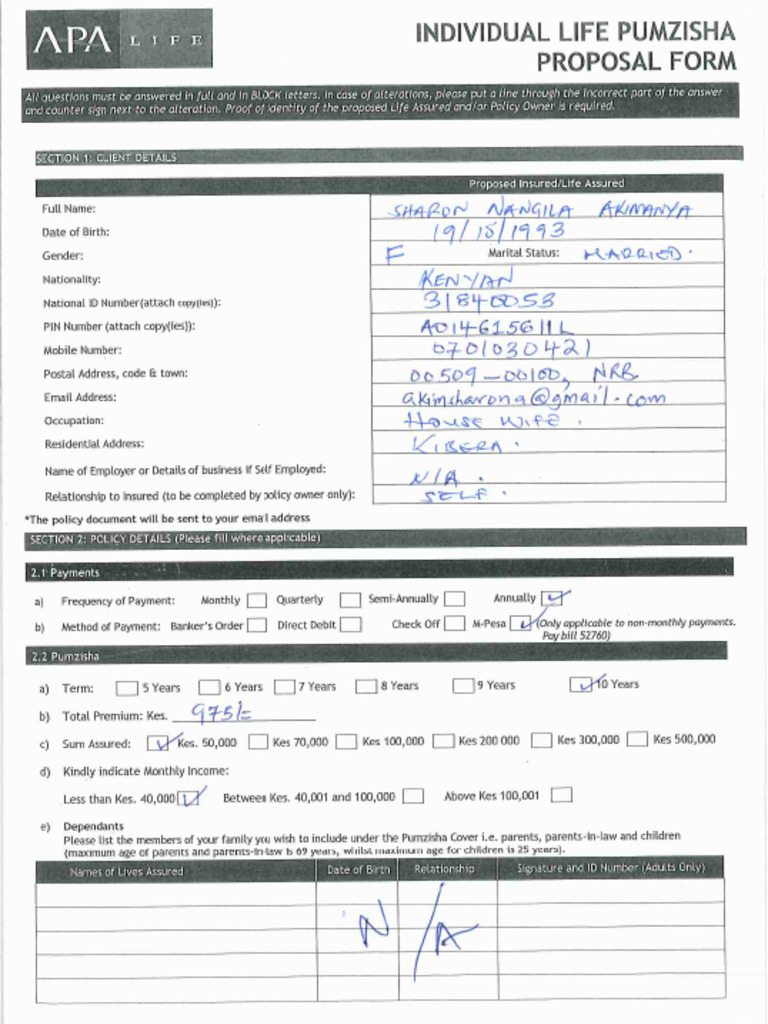 APA LIFE
INDIVIDUAL LIFE PUMZISHA
PROPOSAL FORM
All questions must be answered in full and in BLOCK letters. In case of alterations, please put a line through the incorrect part of the answer
and counter sign next to the alteration. Proof of identity of the proposed Life Assured and/or Policy Owner is required.
SECTION 1: CLIENT DETAILS
Proposed Insured/Life Assured
Full Name: SHARON NANGILA AKIMANYA
Date of Birth: 19/15/1993
Gender: F Marital Status: MARRIED.
Nationality: KENYAN
National ID Number(attach copy(ies)): 31840053
PIN Number (attach copy(ies)): A014615611L
Mobile Number: 0701030421
Postal Address, code & town: 00509-00100, NRB.
Email Address: akimsharona@gmail.com
Occupation: HOUSE WIFE.
Residential Address: KIBERA.
Name of Employer or Details of business if Self Employed: N/A.
Relationship to Insured (to be completed by policy owner only): SELF.
*The policy document will be sent to your email address
SECTION 2: POLICY DETAILS (Please fill where applicable)
2.1 Payments
a) Frequency of Payment: Monthly Quarterly Semi-Annually Annually
b) Method of Payment: Banker's Order Direct Debit Check Off M-Pesa (Only applicable to non-monthly payments.
Pay bill 52760)
2.2 Pumzisha
a) Term: 5 Years 6 Years 7 Years 8 Years 9 Years 10 Years
b) Total Premium: Kes. 975/=
c) Sum Assured: Kes. 50,000 Kes 70,000 Kes 100,000 Kes 200 000 Kes 300,000 Kes 500,000
d) Kindly indicate Monthly Income:
Less than Kes. 40,000 Between Kes. 40,001 and 100,000 Above Kes 100,001
e) Dependants
Please list the members of your family you wish to include under the Pumzisha Cover i.e. parents, parents-in-law and children
(maximum age of parents and parents-in-law is 69 years, whilst maximum age for children is 25 years).
Names of Lives Assured Date of Birth Relationship Signature and ID Number (Adults Only)
N/A